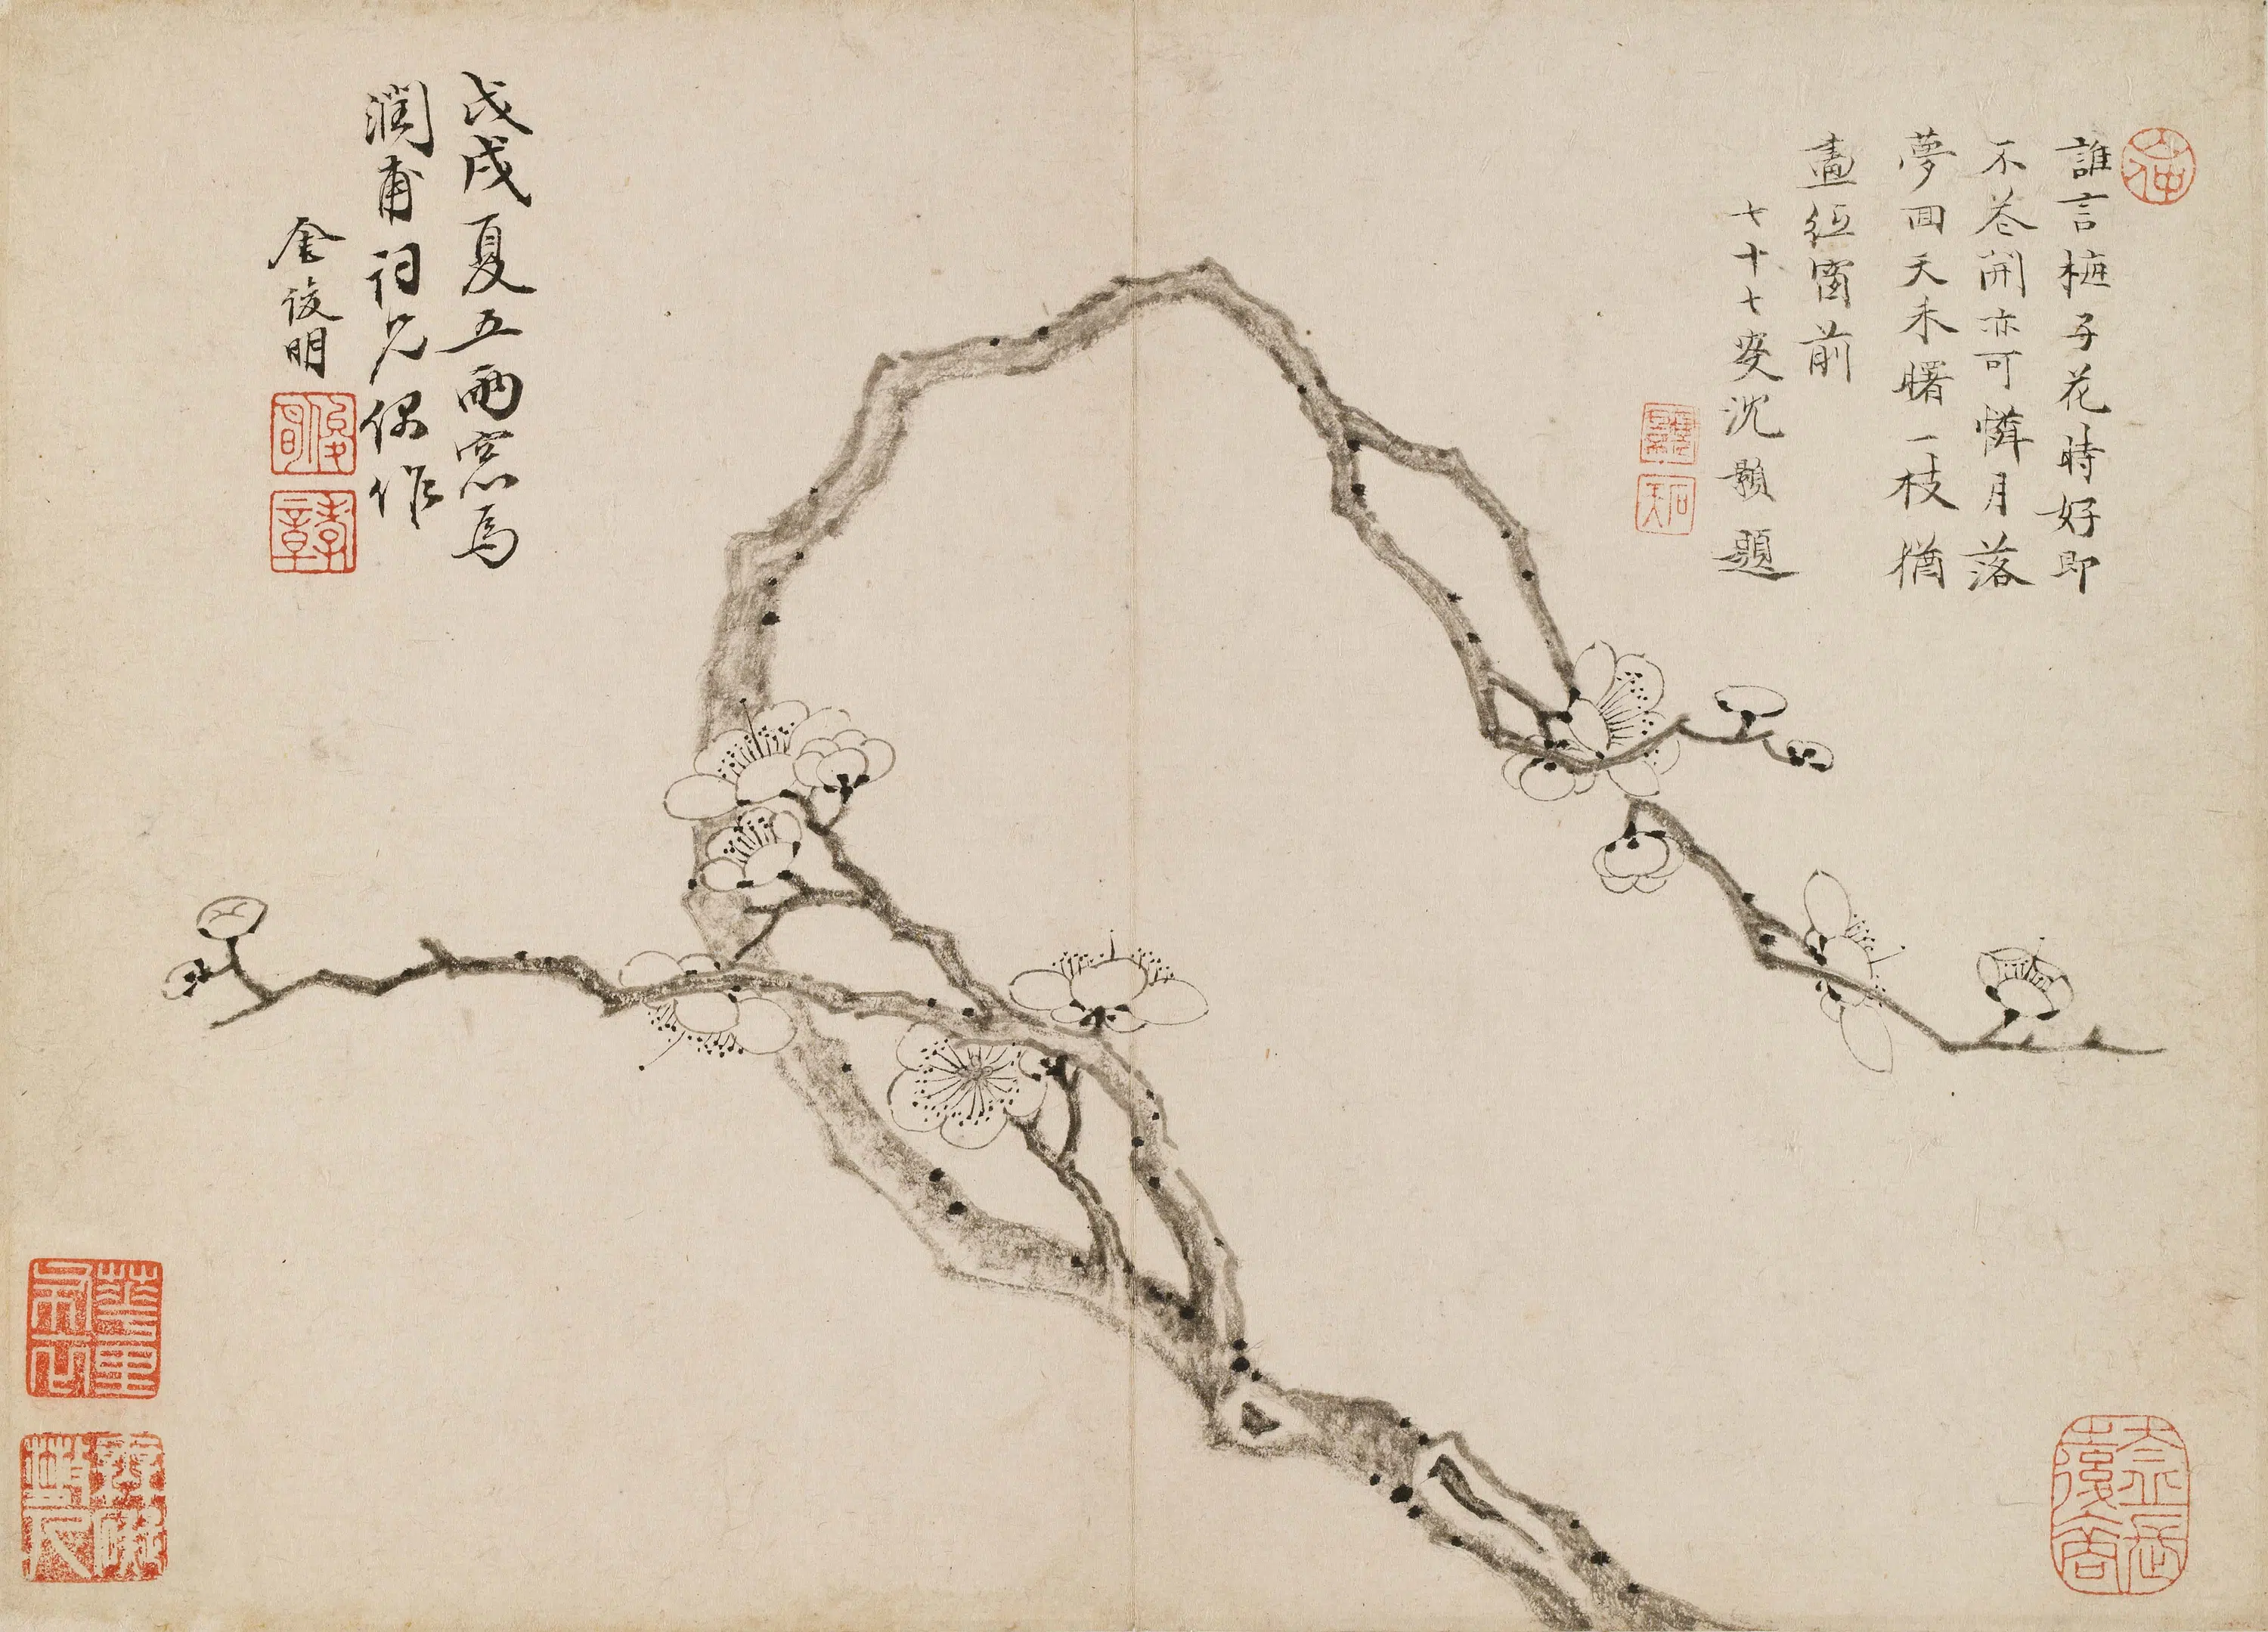 誰言梅子花時好即
不花開亦可憐月落
夢回天未曙一枝猶
畫紙窗前
七十七叟沈顥題
石天
戊戌夏五雨窓為
潤甫詞兄偶作
金俊明
俊明
孝章